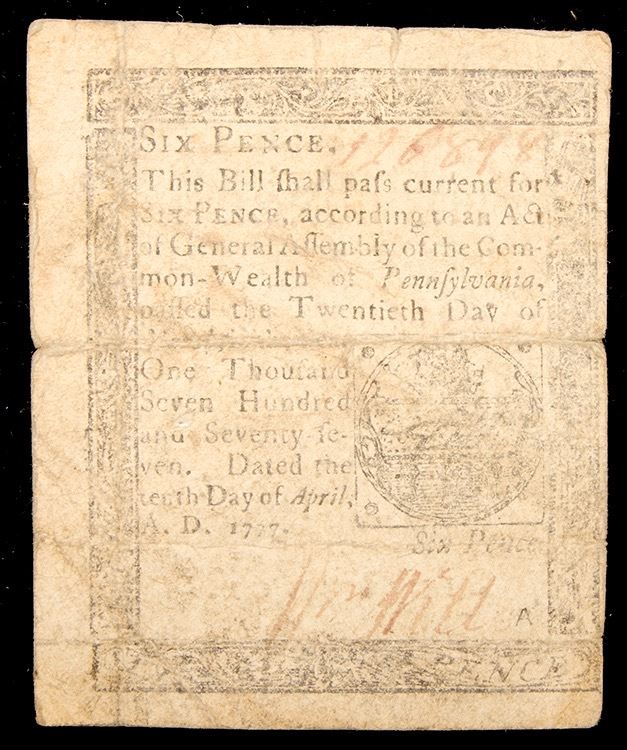 SIX PENCE.
126898
This Bill ſhall paſs current for
SIX PENCE, according to an Act
of General Aſſembly of the Com-
mon-Wealth of Pennſylvania,
paſſed the Twentieth Day of
One Thouſand
Seven Hundred
and Seventy-ſe-
ven. Dated the
tenth Day of April,
A. D. 1777.
Six Pence
A
PENCE